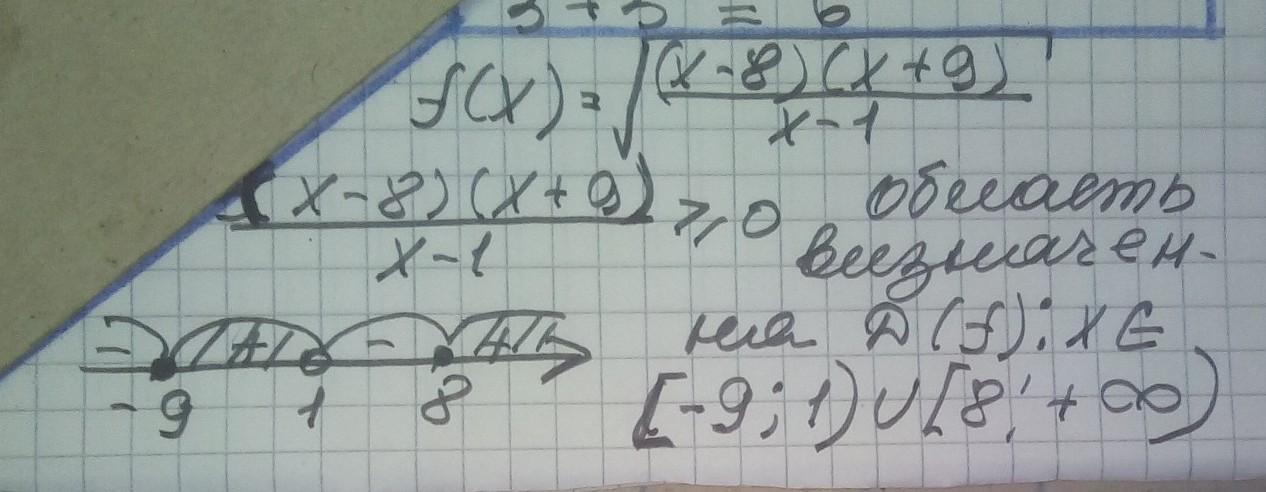 3 + 3 = 6
f(x) = √((x-8)(x+9)/(x-1))
(x-8)(x+9)/(x-1) ⩾ 0 область
визначен-
ня D(f): x ∈
[-9; 1) ∪ [8; +∞)
- + - +
-9 1 8